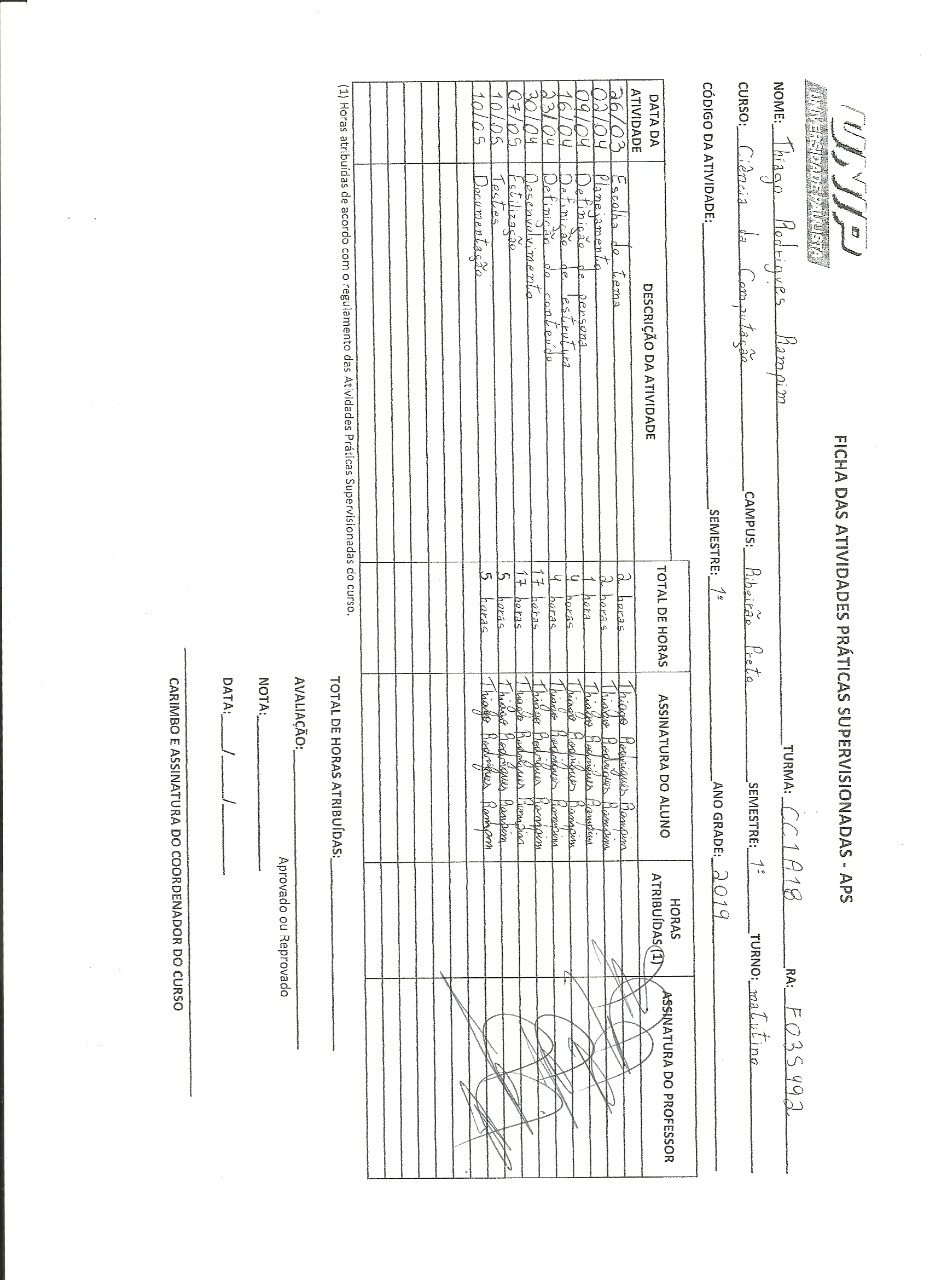 UNIP
UNIVERSIDADE PAULISTA
FICHA DAS ATIVIDADES PRÁTICAS SUPERVISIONADAS - APS
NOME: Thiago Rodrigues Rampim TURMA: CC1A18 RA: F035492
CURSO: Ciência da Computação CAMPUS: Ribeirão Preto SEMESTRE: 1º TURNO: matutino
CÓDIGO DA ATIVIDADE: SEMESTRE: 1º ANO GRADE: 2019
DATA DA ATIVIDADE DESCRIÇÃO DA ATIVIDADE TOTAL DE HORAS ASSINATURA DO ALUNO HORAS ATRIBUÍDAS (1) ASSINATURA DO PROFESSOR
26/03 Escolha do tema 2 horas Thiago Rodrigues Rampim
02/04 Planejamento 2 horas Thiago Rodrigues Rampim
09/04 Definição de persona 1 hora Thiago Rodrigues Rampim
16/04 Definição de estrutura 4 horas Thiago Rodrigues Rampim
23/04 Definição do conteúdo 4 horas Thiago Rodrigues Rampim
30/04 Desenvolvimento 17 horas Thiago Rodrigues Rampim
07/05 Estilização 17 horas Thiago Rodrigues Rampim
10/05 Testes 5 horas Thiago Rodrigues Rampim
10/05 Documentação 5 horas Thiago Rodrigues Rampim
(1) Horas atribuídas de acordo com o regulamento das Atividades Práticas Supervisionadas do curso.
TOTAL DE HORAS ATRIBUÍDAS:
AVALIAÇÃO:
Aprovado ou Reprovado
NOTA:
DATA: / /
CARIMBO E ASSINATURA DO COORDENADOR DO CURSO